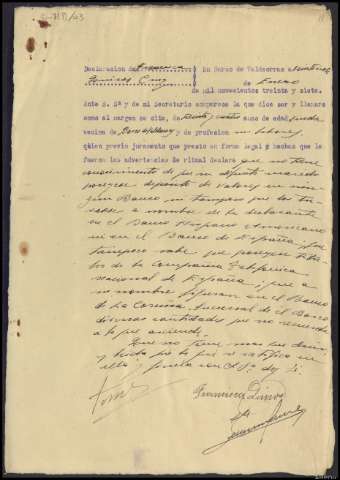 Declaracion de Francisca
En Barco de Valdeorras a
de Enero
de mil novecientos treinta y siete.
Ante S. Sª y de mi Secretario comparece la que dice ser y llamarse
como al margen se cita, de años de edad, viuda
vecina de y de profesion sus labores,
quien previo juramento que presto en forma legal y hechas que
le fueron las advertencias de ritual declara que no tiene
conocimiento de que su difunto marido
poseyese deposito de valores en nin-
gun Banco ni tampoco que los tu-
viese a nombre de la declarante
en el Banco Hispano Americano
ni en el Banco de España, que
tampoco sabe que poseyese titu-
los de la Compañia Telefonica
nacional de España, que a
su nombre en el Banco
de La Coruña, sucursal de el Barco
diversas cantidades que no recuerda
a lo que asciende.
Que no tiene mas que decir
y leida que le fue se ratifica en
ello y firma con S. Sª doy fe.
Francisca